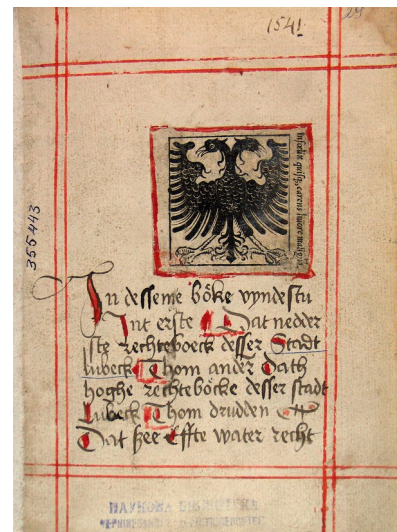 1541
24
355443
In desseme böke vyndestu
Int erste Dat nedder
ste rechteboeck desser Stadt
lubeck Thom ander Dath
hoghe rechteböcke desser stadt
Lubeck Thom drudden
Dat see Effte water recht